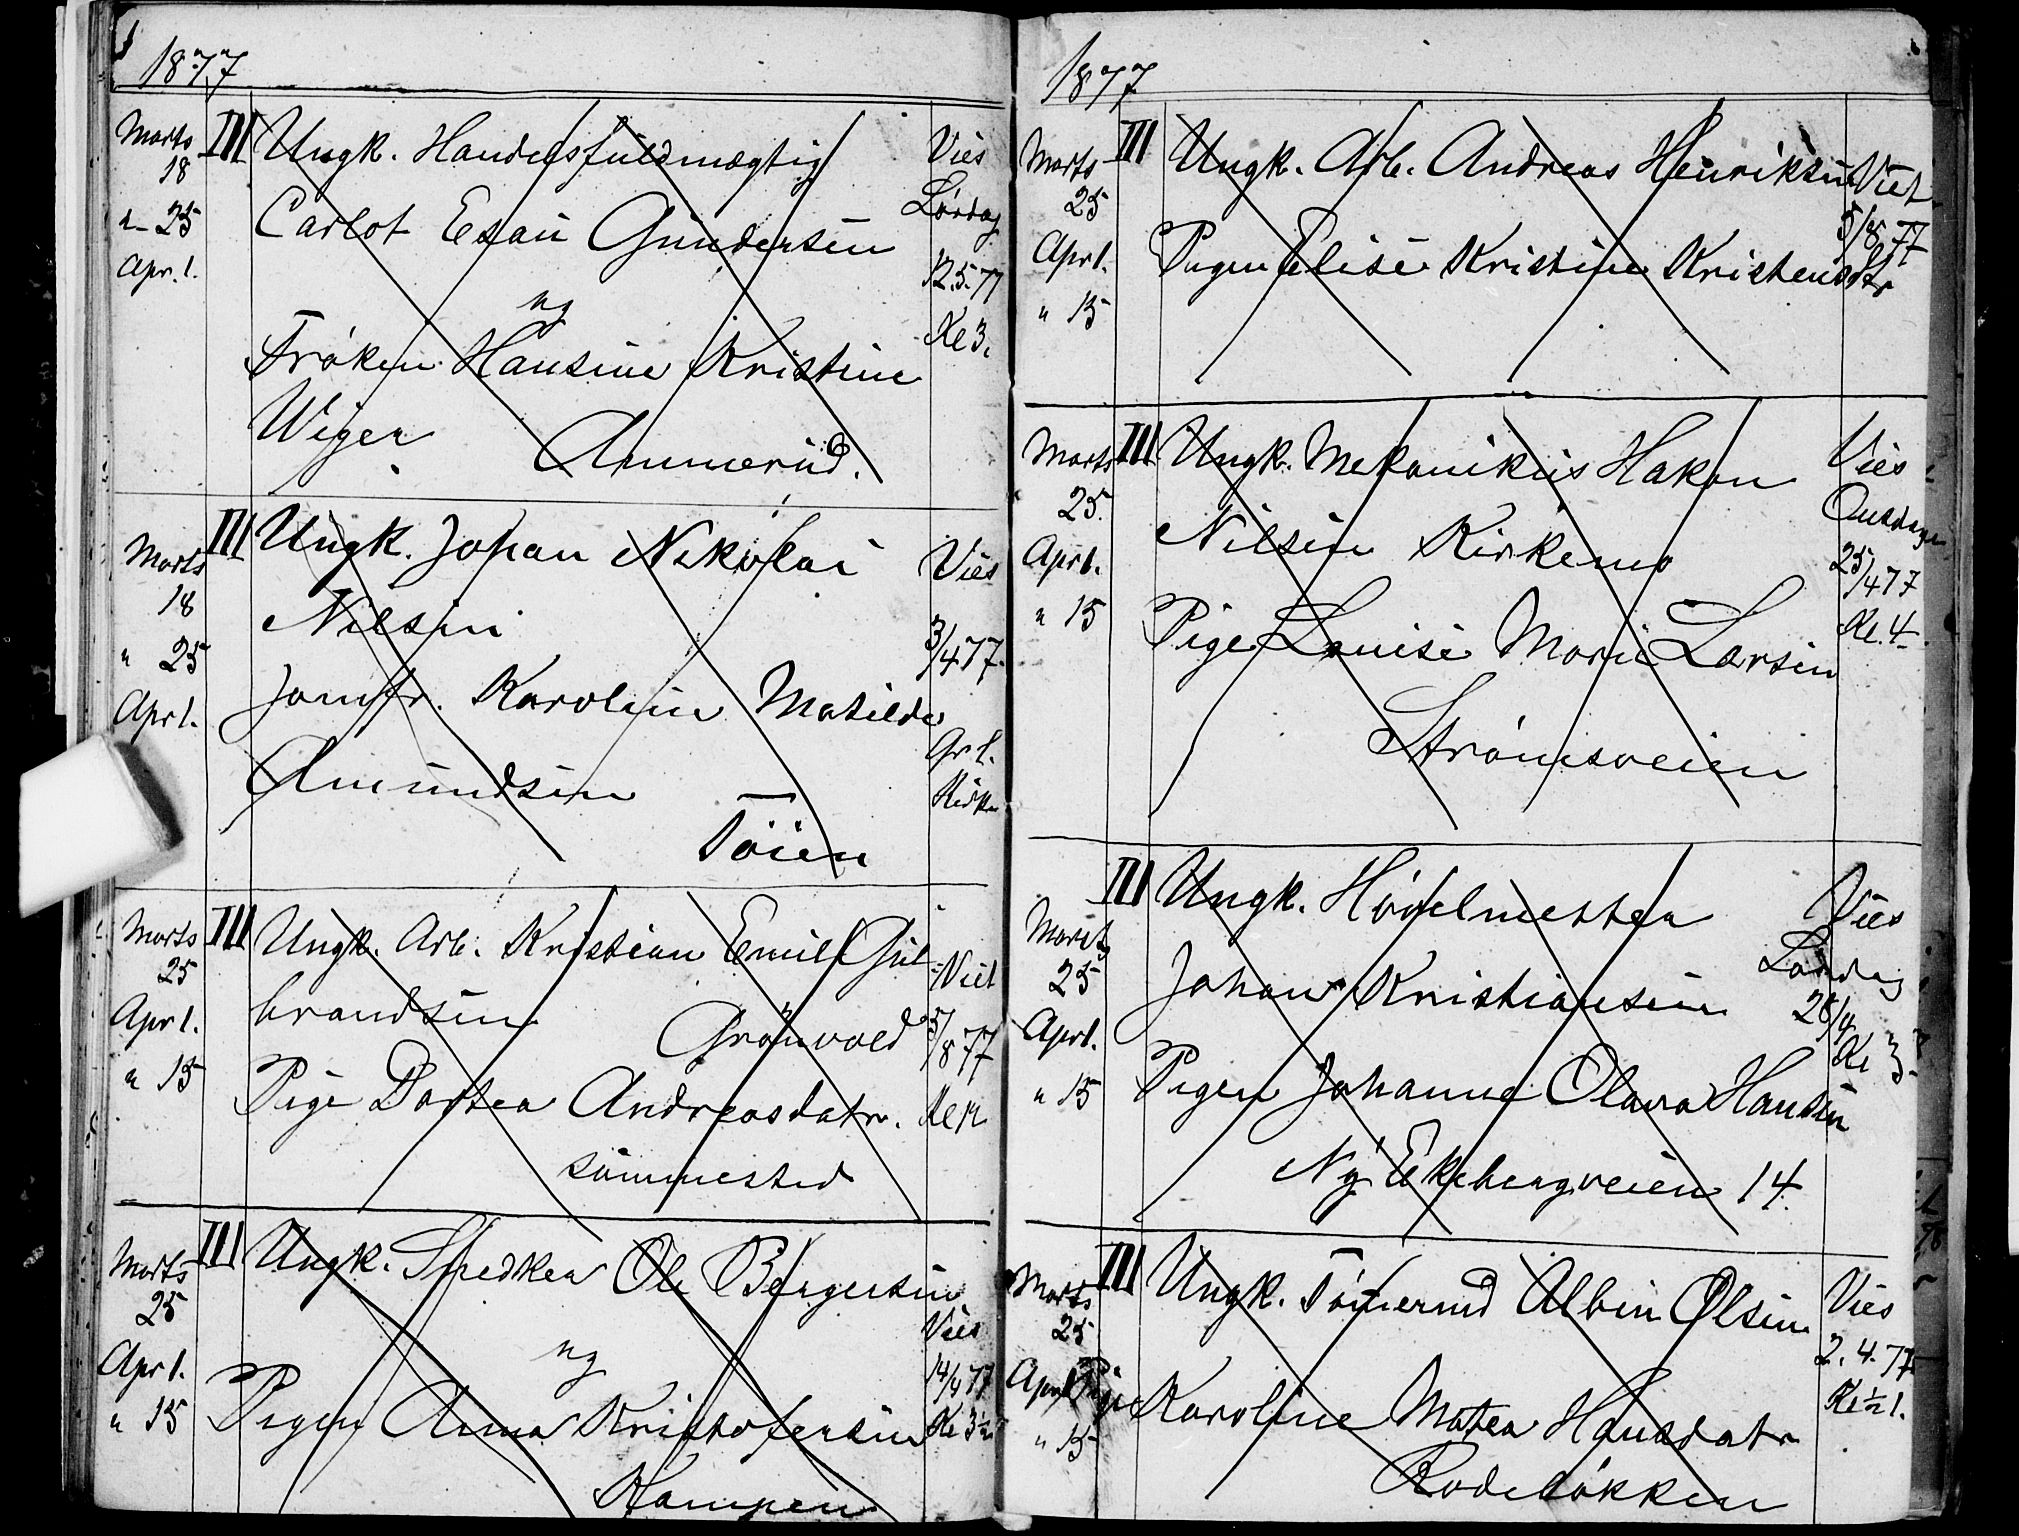 1877
Marts 18 III Ungk. Handelsfuldmægtig Vies
" 25 Carlot Esau Gundersen Lördag
Apr. 1. og 12.5.77
Fröken Hansine Kristine Kl 3.
Wiger Ammerud.
Marts 18 III Ungk. Johan Nikolai Vies
" 25 Nilsen 3/4 77.
Apr 1. Jomfr. Karoline Matilde Grl.
Amundsen Kirke
Töien
Marts 25 III Ungk. Arb. Kristian Emil Gul- Viet
Apr 1. brandsen Grönvold 5/8 77
" 15 Pige Dortea Andreasdatr. Kl 12
sammested
Marts 25 III Ungk. Snedker Ole Bergersen Vies
Apr 1. og 14/4 77
" 15 Pigen Anna Kristofersen Kl 3½
Kampen
1877
Marts 25 III Ungk. Arb. Andreas Henriksen Viet
Apr 1. Pigen Elise Kristine Kristensdtr 5/8 77
" 15
Marts 25. III Ungk. Mekanikus Hakon Vies
Apr 1. Nilsen Kirkemo Onsdagen 25/4 77
" 15 Pige Louise Marie Larsen Kl. 4
Strömsveien
Marts 25 III Ungk. Hövelmester Vies
Apr 1. Johan Kristiansen Lördag 28/4
" 15 Pigen Johanne Olava Hansen Kl 3
Ny Ekebergveien 14.
Marts 25 III Ungk. Tömermd Albin Olsen Vies
Apr 1 Pige Karoline Matea Hansdatr 2. 4. 77
" 15 Rodelökken Kl ½ 1.